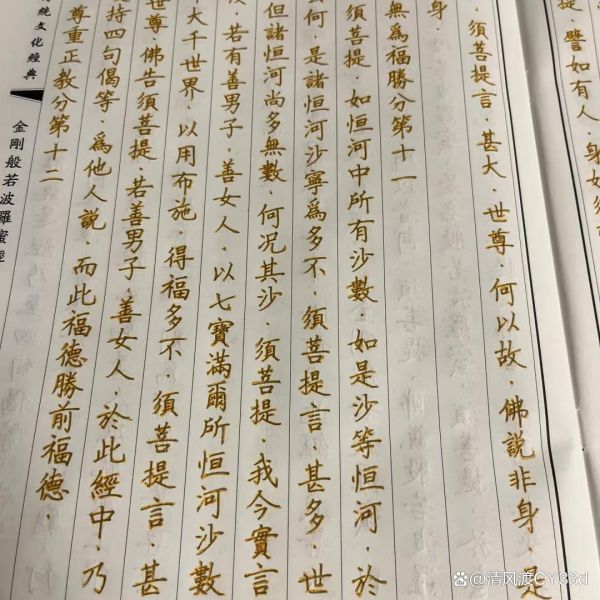 提.譬如有人.身如須
須菩提言.甚大.世尊.何以故.佛說非身.是
身.
無爲福勝分第十一
須菩提.如恒河中所有沙數.如是沙等恒河.於
何.是諸恒河沙寧爲多不.須菩提言.甚多.世
但諸恒河尚多無數.何况其沙.須菩提.我今實言
汝.若有善男子.善女人.以七寶滿爾所恒河沙數
大千世界.以用布施.得福多不.須菩提言.甚
世尊.佛告須菩提.若善男子.善女人.於此經中.乃
持四句偈等.爲他人說.而此福德勝前福德.
尊重正教分第十二
統文化經典
金剛般若波羅蜜經
@清风渡CY33d